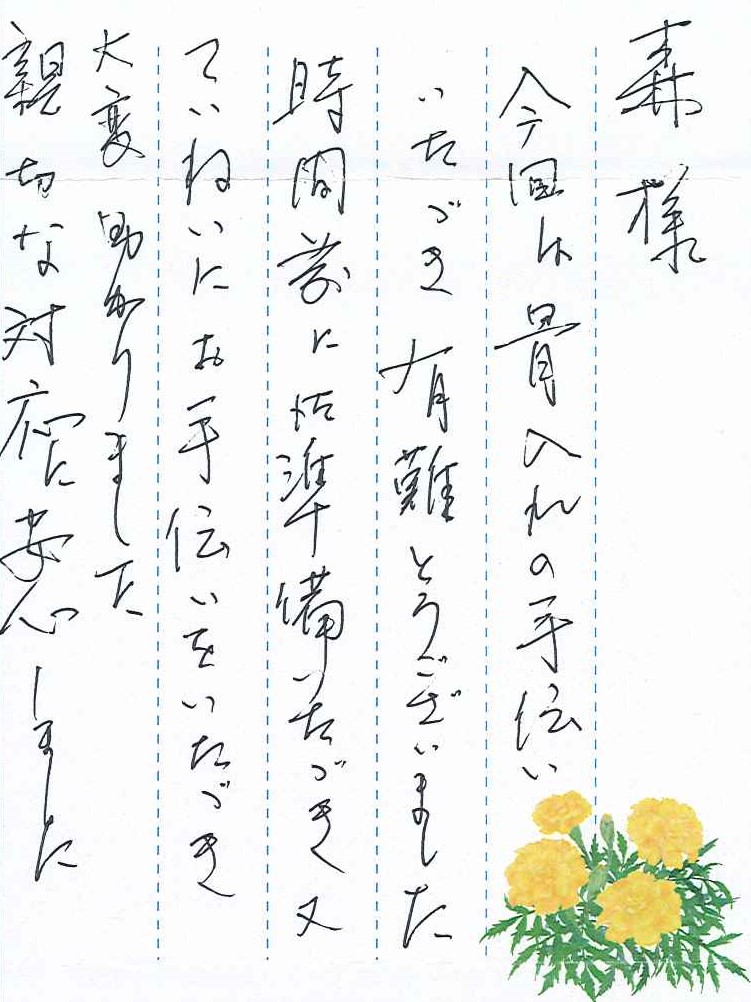 森様
今回は骨入れの手伝い
いたゞき有難とうございました
時間前に御準備いたゞき又
ていねいにお手伝いをいたゞき
大変助かりました
親切な対応に安心しました